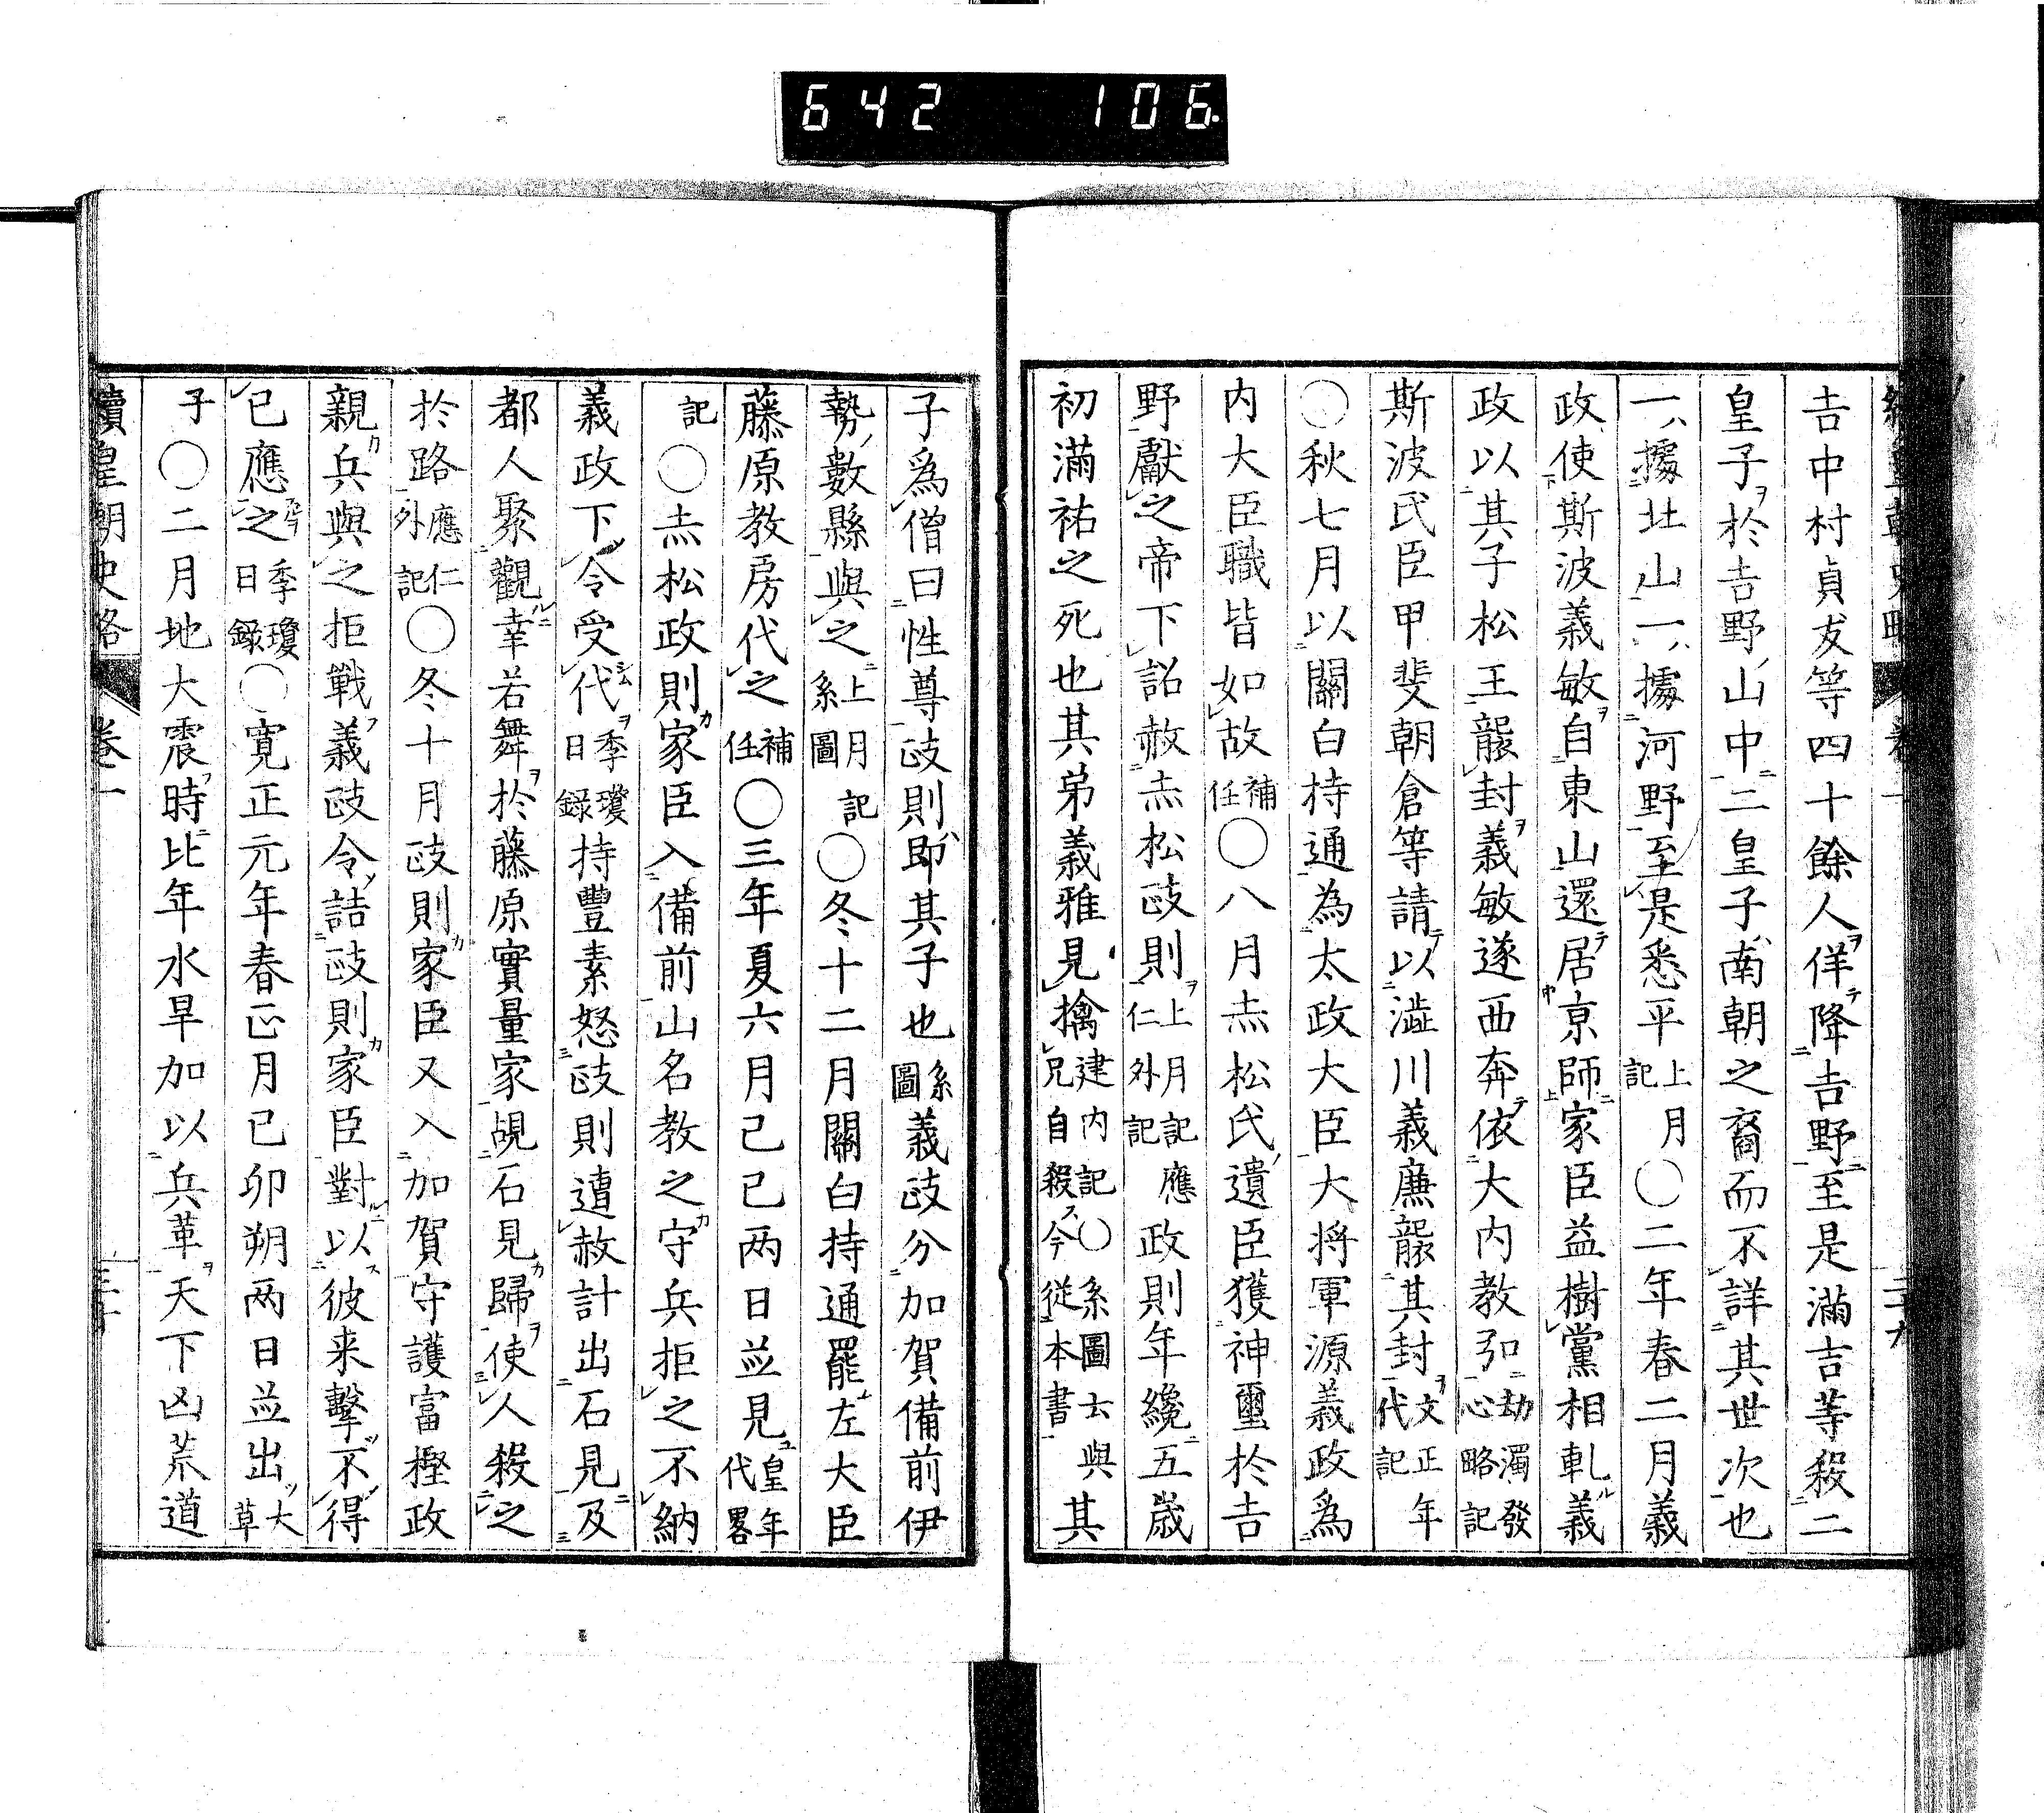 642 106
吉中村貞友等四十餘人佯降吉野至是滿吉等殺二
皇子於吉野山中二皇子南朝之裔而不詳其世次也
一據北山一據河野至是悉平上月記○二年春二月義
政使斯波義敏自東山還居京師家臣益樹黨相軋義
政以其子松王襲封義敏遂西奔依大内教弘劫濁發心略記
斯波氏臣甲斐朝倉等請以澁川義廉襲其封文正年代記
○秋七月以關白持通為太政大臣大将軍源義政爲
内大臣職皆如故補任○八月赤松氏遺臣獲神璽於吉
野獻之帝下詔赦赤松政則上月記應仁外記政則年纔五歲
初滿祐之死也其弟義雅見擒建内記○系圖云與其兄自殺今從本書其
子爲僧曰性尊政則即其子也系圖義政分加賀備前伊
勢數縣與之上月記系圖○冬十二月關白持通罷左大臣
藤原教房代之補任○三年夏六月己巳两日並見皇年代畧
記○赤松政則家臣入備前山名教之守兵拒之不納
義政下令受代季瓊日録持豐素怒政則遭赦計出石見及
都人聚觀幸若舞於藤原實量家覘石見歸使人殺之
於路應仁外記○冬十月政則家臣又入加賀守護富樫政
親兵與之拒戰義政令詰政則家臣對以彼来擊不得
已應之季瓊日録○寛正元年春正月己卯朔两日並出大草
子○二月地大震時比年水旱加以兵革天下凶荒道
續皇朝史略 卷一